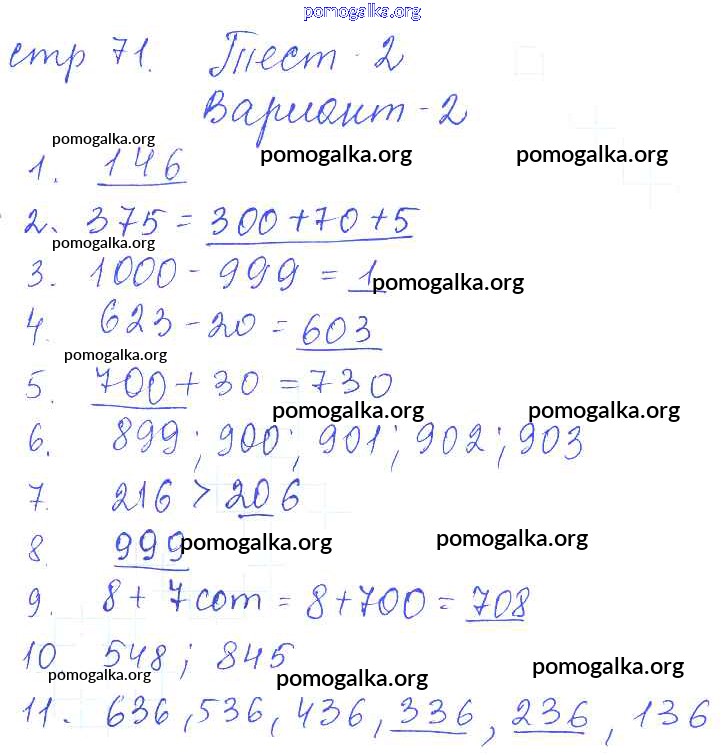 pomogalka.org
стр 71. Тест - 2
Вариант - 2
pomogalka.org
pomogalka.org pomogalka.org
1. 146
2. 375 = 300+70+5
pomogalka.org
3. 1000 - 999 = 1
pomogalka.org
4. 623 - 20 = 603
pomogalka.org
5. 700 + 30 = 730
pomogalka.org pomogalka.org
6. 899; 900; 901; 902; 903
7. 216 > 206
8. 999
pomogalka.org pomogalka.org
9. 8 + 7 сот = 8+700 = 708
10 548; 845
pomogalka.org pomogalka.org pomogalka.org
11. 636, 536, 436, 336, 236, 136